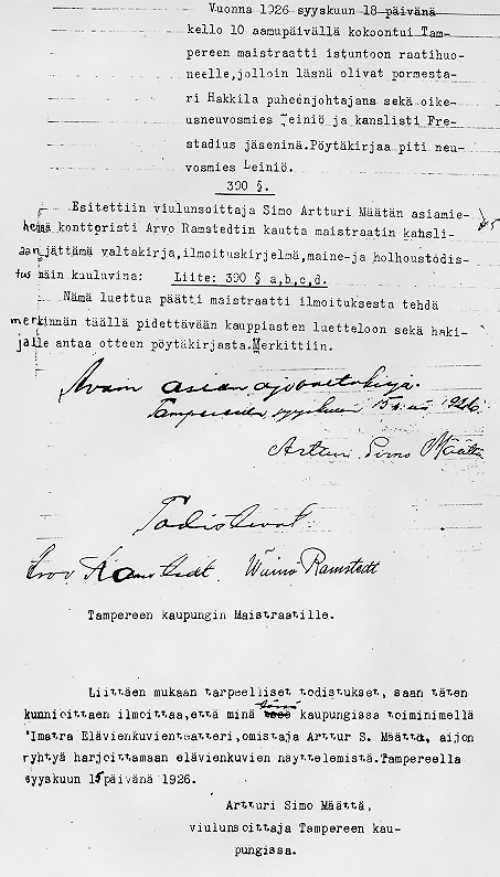 Vuonna 1926 syyskuun 18 päivänä
kello 10 aamupäivällä kokoontui Tam-
pereen maistraatti istuntoon raatihuo-
neelle,jolloin läsnä olivat pormesta-
ri Hakkila puheenjohtajana sekä oike-
usneuvosmies Leiniö ja kanslisti Fre-
stadius jäseninä.Pöytäkirjaa piti neu-
vosmies Leiniö.
390 §.
Esitettiin viulunsoittaja Simo Artturi Määtän asiamie-
henä konttoristi Arvo Ramstedtin kautta maistraatin kansli-
aan jättämä valtakirja,ilmoituskirjelmä,maine-ja holhoustodis-
tus näin kuuluvina: Liite: 390 § a,b,c,d.
Nämä luettua päätti maistraatti ilmoituksesta tehdä
merkinnän täällä pidettävään kauppiasten luetteloon sekä haki-
jalle antaa otteen pöytäkirjasta.Merkittiin.
Avoin asianajovaltakirja.
Tampereella, syyskuun 15 p:nä 1926.
Artturi Simo Määttä
Todistavat:
Arvo Ramstedt. Wäinö Ramstedt
Tampereen kaupungin Maistraatille.
Liittäen mukaan tarpeelliset todistukset, saan täten
kunnioittaen ilmoittaa,että minä tässä kaupungissa toiminimellä
"Imatra Elävienkuvienteatteri,omistaja Arttur S. Määttä, aijon
ryhtyä harjoittamaan elävienkuvien näyttelemistä.Tampereella
syyskuun 15 päivänä 1926.
Artturi Simo Määttä,
viulunsoittaja Tampereen kau-
pungissa.